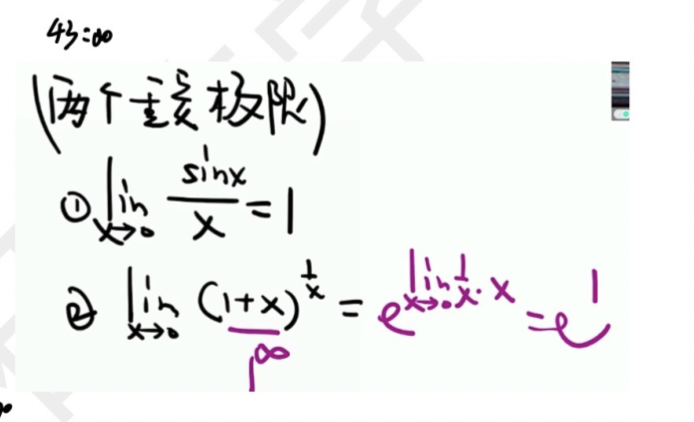 43:00
(两个重要极限)
① lim x→0 sinx/x = 1
② lim x→0 (1+x)^(1/x) = e^(lim x→0 1/x·x) = e^1
1^∞